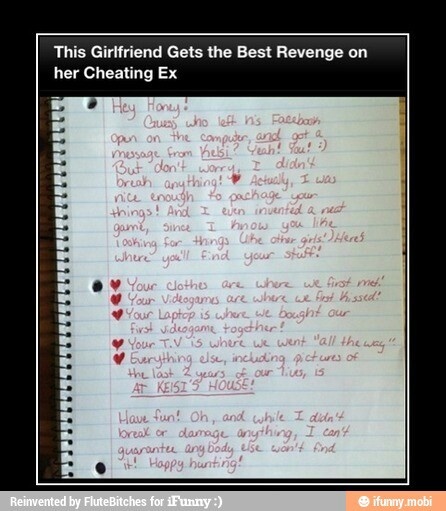 This Girlfriend Gets the Best Revenge on
her Cheating Ex
Hey Honey!
Guess who left his Facebook
open on the computer, and got a
message from Keisi? Yeah! You! :)
But don't worry, I didn't
break anything! ♥ Actually, I was
nice enough to package your
things! And I even invented a neat
game, since I know you like
looking for things (like other girls!) Here's
where you'll find your stuff!
♥ Your clothes are where we first met!
♥ Your videogames are where we first kissed!
♥ Your Laptop is where we bought our
first videogame together!
♥ Your T.V is where we went "all the way"
♥ Everything else, including pictures of
the last 2 years of our lives, is
AT KEISI'S HOUSE!
Have fun! Oh, and while I didn't
break or damage anything, I can't
guarantee anybody else won't find
it! Happy hunting!
Reinvented by FluteBitches for iFunny :)
ifunny.mobi